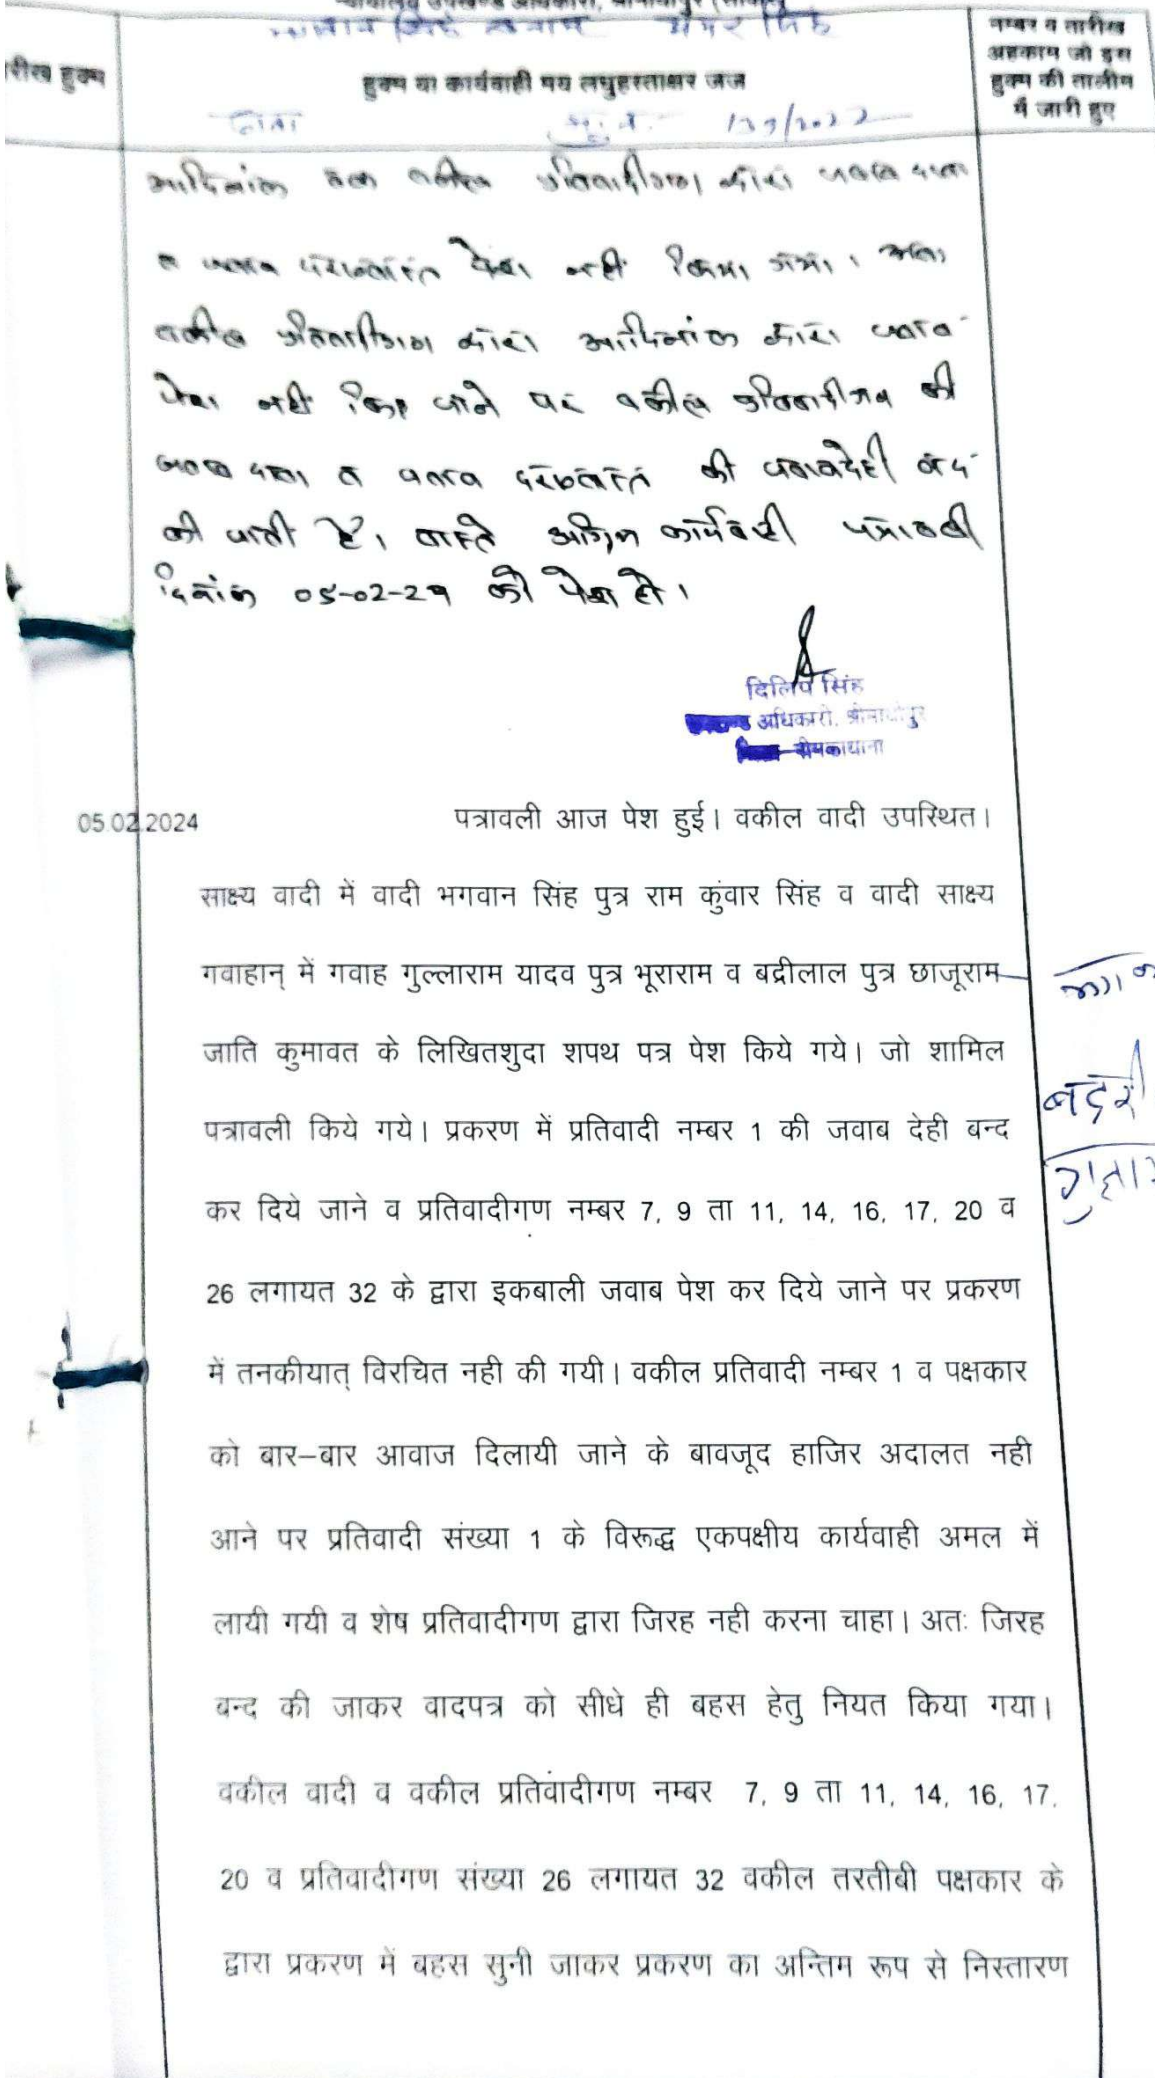 न्यायालय उपखण्ड अधिकारी,
सिंह बनाम सिंह
रीख हुक्म
हुक्म या कार्यवाही मय लघुहस्ताक्षर जज
नम्बर व तारीख
अहकाम जो इस
हुक्म की तालीम
में जारी हुए
दावा मु.न. 139/2022
आदिनांक तक वकील प्रतिवादीगण द्वारा जवाब दावा
व जवाब दरख्वास्त पेश नही किया गया। अतः
वकील प्रतिवादीगण द्वारा आदिनांक द्वारा जवाब
पेश नही किए जाने पर वकील प्रतिवादीगण की
जवाब दावा व जवाब दरख्वास्त की जवाबदेही बन्द
की जाती है। वास्ते अग्रिम कार्यवाही पत्रावली
दिनांक 05-02-24 को पेश हो।
दिलिप सिंह
अधिकारी,
नीमकाथाना
05.02.2024
पत्रावली आज पेश हुई। वकील वादी उपस्थित।
साक्ष्य वादी में वादी भगवान सिंह पुत्र राम कुंवार सिंह व वादी साक्ष्य
गवाहान् में गवाह गुल्लाराम यादव पुत्र भूराराम व बद्रीलाल पुत्र छाजूराम
जाति कुमावत के लिखितशुदा शपथ पत्र पेश किये गये। जो शामिल
पत्रावली किये गये। प्रकरण में प्रतिवादी नम्बर 1 की जवाब देही बन्द
कर दिये जाने व प्रतिवादीगण नम्बर 7, 9 ता 11, 14, 16, 17, 20 व
26 लगायत 32 के द्वारा इकबाली जवाब पेश कर दिये जाने पर प्रकरण
में तनकीयात् विरचित नही की गयी। वकील प्रतिवादी नम्बर 1 व पक्षकार
को बार–बार आवाज दिलायी जाने के बावजूद हाजिर अदालत नही
आने पर प्रतिवादी संख्या 1 के विरूद्ध एकपक्षीय कार्यवाही अमल में
लायी गयी व शेष प्रतिवादीगण द्वारा जिरह नही करना चाहा। अतः जिरह
बन्द की जाकर वादपत्र को सीधे ही बहस हेतु नियत किया गया।
वकील वादी व वकील प्रतिवादीगण नम्बर 7, 9 ता 11, 14, 16, 17.
20 व प्रतिवादीगण संख्या 26 लगायत 32 वकील तरतीबी पक्षकार के
द्वारा प्रकरण में बहस सुनी जाकर प्रकरण का अन्तिम रूप से निस्तारण